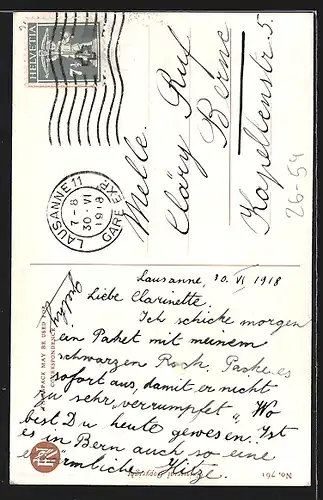 HELVETIA
7½
LAUSANNE 11
7-8
30.VI
1918
GARE EXP.
Melle.
Cläry Ruf
Berne
Kapellenstr. 5.
26-54
Lausanne, 30. VI 1918
Liebe Clarinette.
Ich schicke morgen
ein Paket mit meinem
schwarzen Rock. Packe es
sofort aus, damit er nicht
zu sehr „verrumpfet". Wo
bist Du heute gewesen. Ist
es in Bern auch so eine
ermliche Hitze.
SPACE MAY BE USED FOR
CORRESPONDENCE
No. 761